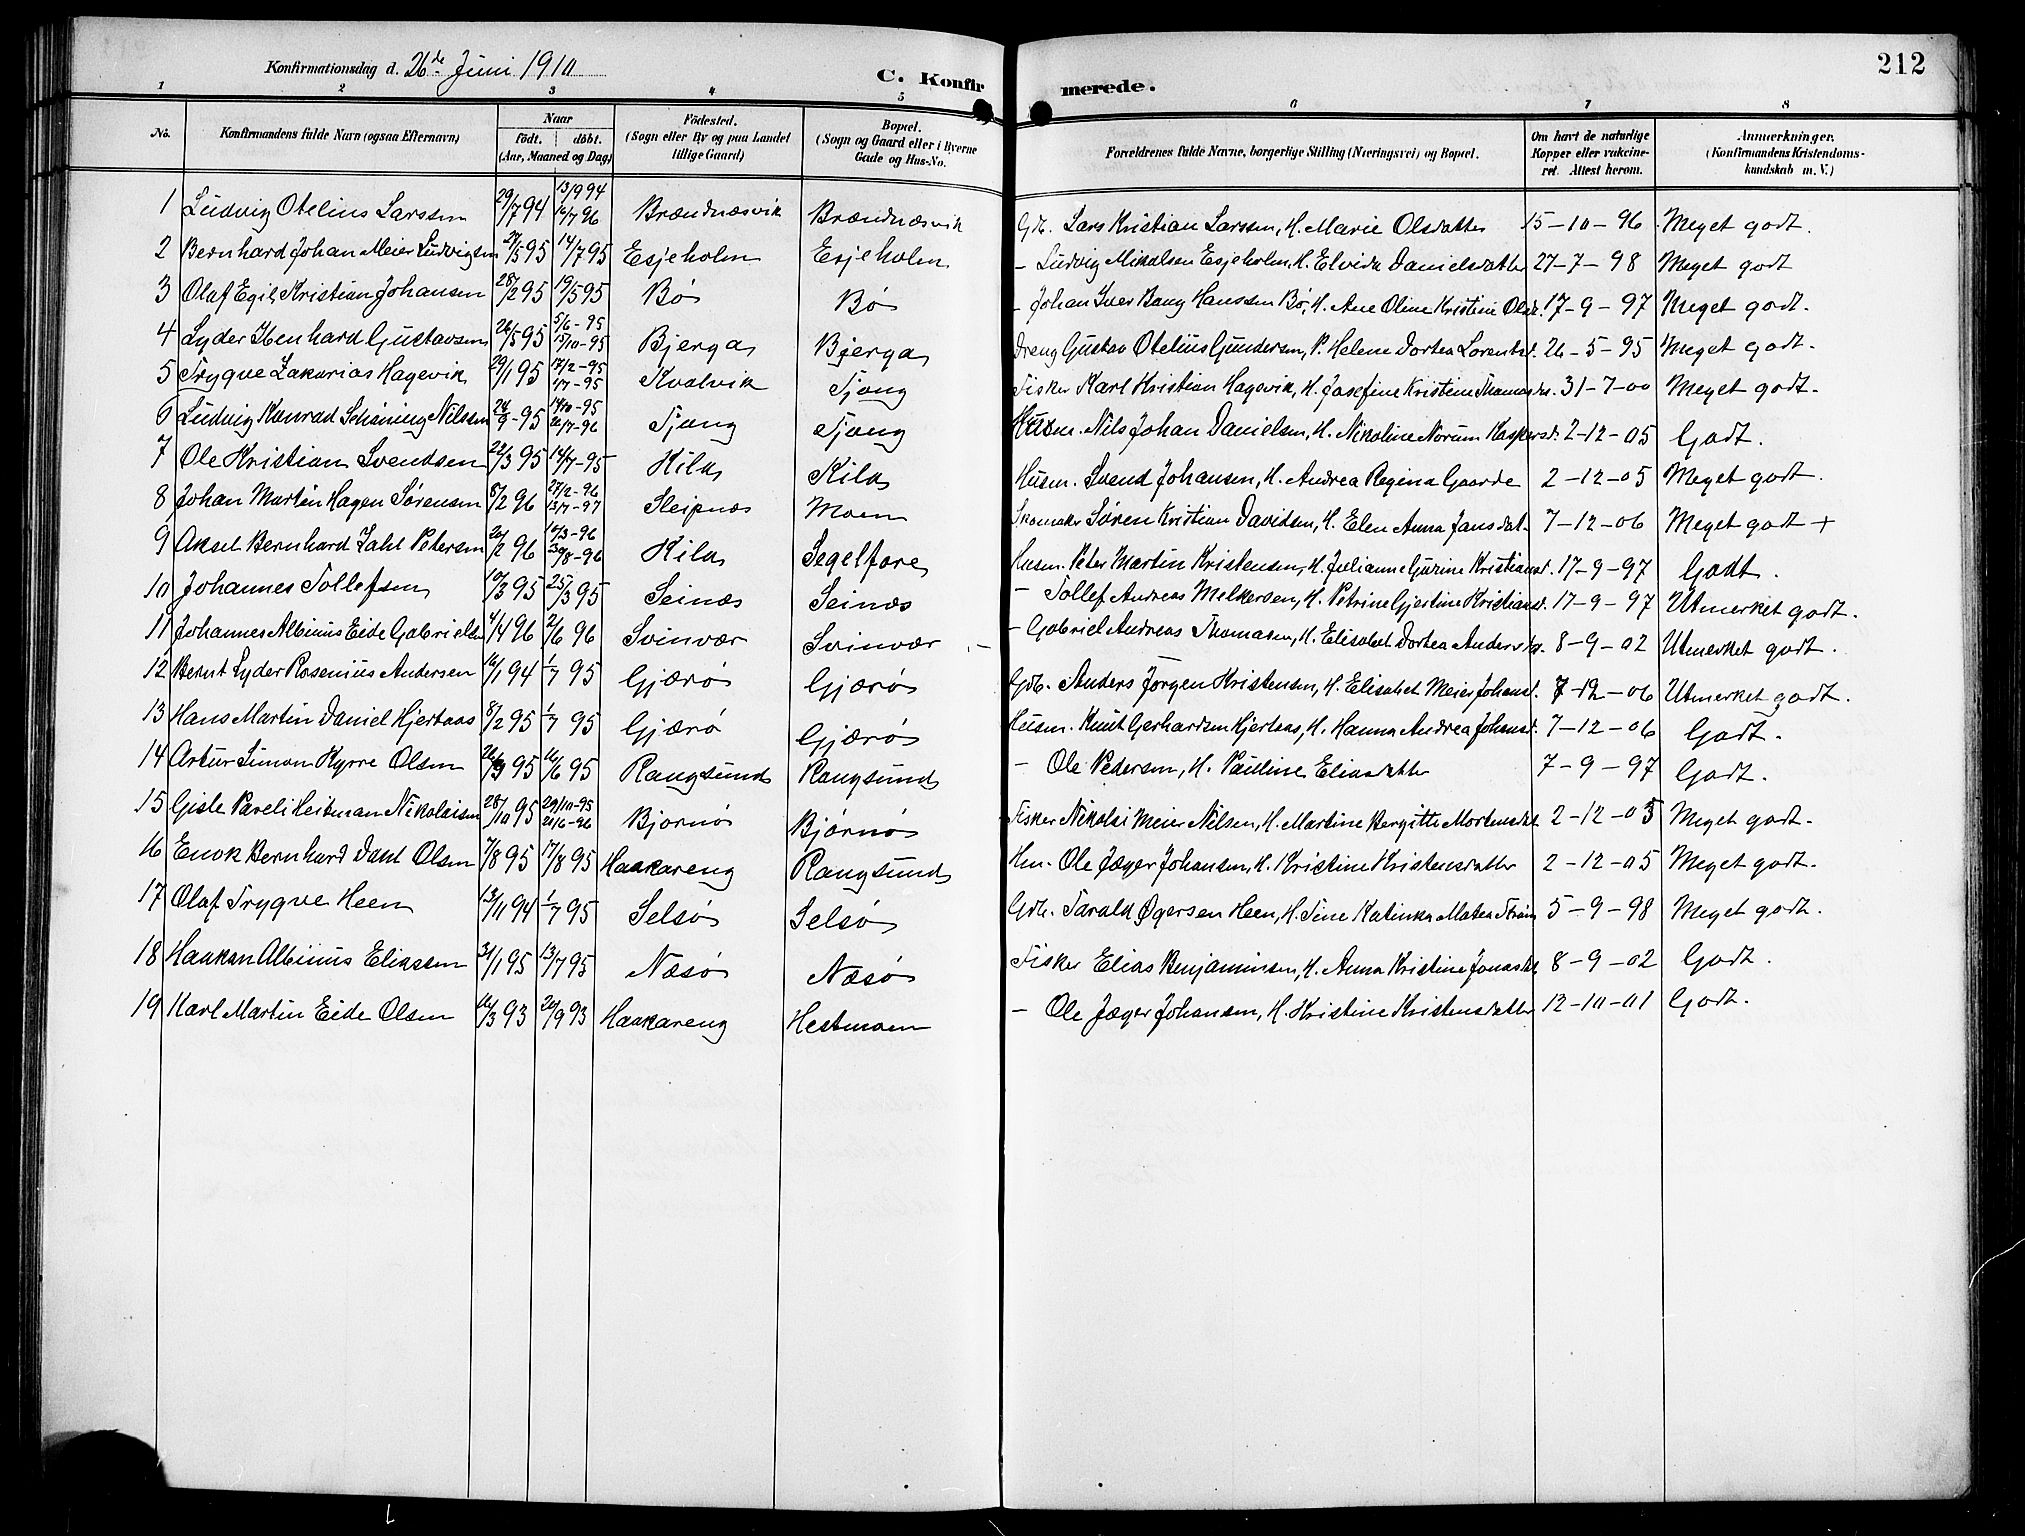 Konfirmationsdag d. 26de Juni 1910
C. Konfirmerede.
212
1 2 3 4 5 6 7 8
No.
Konfirmandens fulde Navn (ogsaa Efternavn)
Naar født. døbt. (Aar, Maaned og Dag)
Fødested. (Sogn eller By og paa Landet tillige Gaard)
Bopæl. (Sogn og Gaard eller i Byerne Gade og Hus-No.
Forældrenes fulde Navne, borgerlige Stilling (Næringsvei) og Bopæl.
Om havt de naturlige Kopper eller vakcineret. Attest herom.
Anmærkninger. (Konfirmandens Kristendomskundskab m. V.)
1 Ludvig Otelius Larssen 29/7 94 13/9 94 16/7 96 Brændnæsvik Brændnæsvik Gdb. Lars Kristian Larssen, H. Marie Olsdatter 15-10-96 Meget godt.
2 Bernhard Johan Meier Ludvigsen 27/5 95 14/7 95 Esjeholm Esjeholm - Ludvig Mikalsen Esjeholm, H. Elvida Danielsdatter 27-7-98 Meget godt
3 Olaf Egil Kristian Johansen 28/2 95 19/5 95 Bø Bø - Johan Iver Bang Hanssen Bø, H. Ane Oline Kristine Olsd. 17-9-97 Meget godt.
4 Lyder Ibenhard Gustavsen 26/5 95 5/6-95 15/10-95 Bjerga Bjerga Dreng Gustav Otelius Gundersen, P. Helene Dortea Lorentsd. 26-5-95 Meget godt.
5 Trygve Zakarias Hagevik 29/1 95 17/2-95 1/7-95 Kvalvik Tjong Fisker Karl Kristian Hagevik, H. Josefine Kristine Thomasd. 31-7-00 Meget godt.
6 Ludvig Konrad Schøning Nilssen 24/9-95 14/10-95 26/7-96 Tjong Tjong Husm. Nils Johan Danielsen, H. Nikoline Norum Kaspersd. 2-12-05 Godt.
7 Ole Kristian Svendsen 22/3 95 14/7-95 Kila Kila Husm. Svend Johansen, H. Andrea Regina Gaarde 2-12-05 Meget godt.
8 Johan Martin Hagen Sørensen 8/2 96 27/2-96 13/7-97 Sleipnæs Moen Skomaker Søren Kristian Davidsen, H. Elen Anna Jansdat. 7-12-06 Meget godt +
9 Aksel Bernhard Zahl Petersen 20/2 96 10/3-96 30/8-96 Kila Segelfore Husm. Peter Martin Kristensen, H. Julianne Gurine Kristiansd. 17-9-97 Godt.
10 Johannes Tollefsen 10/3 95 25/3 95 Seinæs Seinæs - Tollef Andreas Melkersen, H. Petrine Gjertine Kristiansd. 17-9-97 Utmerket godt.
11 Johannes Albinus Eide Gabrielsen 4/4 96 21/6 96 Svinvær Svinvær - Gabriel Andreas Thomasen, H. Elisabet Dortea Andersd. 8-9-02 Utmerket godt.
12 Bernt Lyder Rosenius Andersen 16/1 94 1/7 95 Gjærø Gjærø Gdb. Anders Jørgen Kristensen, H. Elisabet Meier Johansd. 7-12-06 Utmerket godt.
13 Hans Martin Daniel Hjertaas 8/2 95 1/7 95 Gjærø Gjærø Husm. Knut Gerhardsen Hjertaas, H. Hanna Andrea Johansd. 7-12-06 Godt.
14 Artur Simon Kyrre Olsen 26/3 95 16/6 95 Rangsund Rangsund - Ole Pedersen, H. Pauline Eliasdatter 7-9-97 Godt.
15 Gisle Pareli Heitman Nikolaisen 28/10 95 29/10-95 21/6-96 Bjørnø Bjørnø Fisker Nikolai Meier Nilsen, H. Martine Bergitte Mortensdat. 2-12-05 Meget godt.
16 Enok Bernhard Dahl Olsen 7/8 95 17/8 95 Haakareng Rangsund Hm. Ole Jæger Johansen, H. Kristine Kristensdatter 2-12-05 Meget godt.
17 Olaf Trygve Heen 13/11 94 1/7 95 Selsø Selsø Gdb. Tarald Øgersen Heen, H. Sine Katinka Matea Strøm 5-9-98 Meget godt.
18 Haakon Albinus Eliassen 31/1 95 13/7 95 Næsø Næsø Fisker Elias Benjaminsen, H. Anna Kristine Jonasdat. 8-9-02 Godt.
19 Karl Martin Eide Olsen 16/3 93 20/9 93 Haakareng Hestmoen - Ole Jæger Johansen, H. Kristine Kristensdatter 12-10-01 Godt.